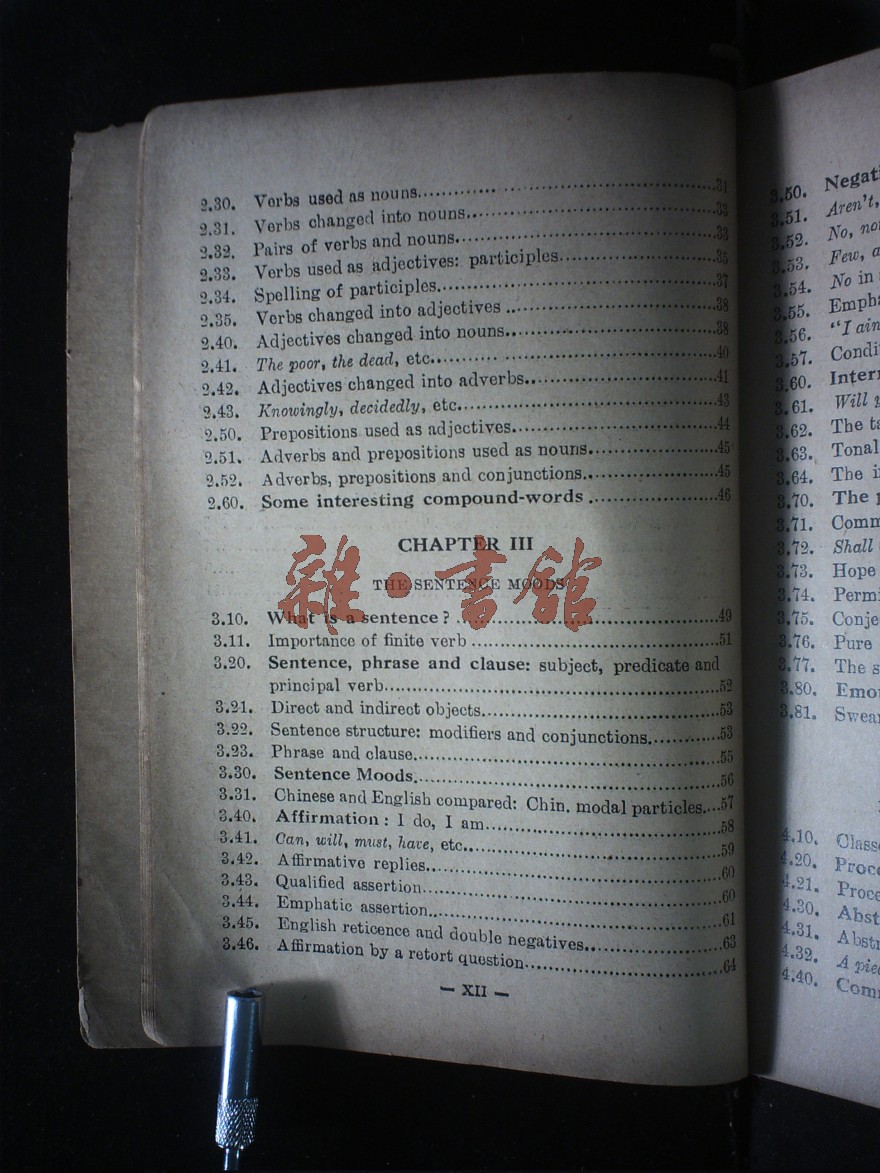 2.30. Verbs used as nouns 31
2.31. Verbs changed into nouns 33
2.32. Pairs of verbs and nouns 33
2.33. Verbs used as adjectives: participles 35
2.34. Spelling of participles 37
2.35. Verbs changed into adjectives 38
2.40. Adjectives changed into nouns 38
2.41. The poor, the dead, etc. 40
2.42. Adjectives changed into adverbs 41
2.43. Knowingly, decidedly, etc. 43
2.50. Prepositions used as adjectives 44
2.51. Adverbs and prepositions used as nouns 45
2.52. Adverbs, prepositions and conjunctions 45
2.60. Some interesting compound-words 46
CHAPTER III
THE SENTENCE MOODS
雜·書館
3.10. What is a sentence? 49
3.11. Importance of finite verb 51
3.20. Sentence, phrase and clause: subject, predicate and
principal verb 52
3.21. Direct and indirect objects 53
3.22. Sentence structure: modifiers and conjunctions 53
3.23. Phrase and clause 55
3.30. Sentence Moods 56
3.31. Chinese and English compared: Chin. modal particles 57
3.40. Affirmation: I do, I am 58
3.41. Can, will, must, have, etc. 59
3.42. Affirmative replies 60
3.43. Qualified assertion 60
3.44. Emphatic assertion 61
3.45. English reticence and double negatives 63
3.46. Affirmation by a retort question 64
— XII —
3.50. Negati
3.51. Aren't,
3.52. No, not
3.53. Few, a
3.54. No in
3.55. Empha
3.56. "I ain
3.57. Condi
3.60. Interr
3.61. Will
3.62. The ta
3.63. Tonal
3.64. The i
3.70. The
3.71. Comm
3.72. Shall
3.73. Hope
3.74. Permi
3.75. Conje
3.76. Pure
3.77. The s
3.80. Emo
3.81. Swear
4.10. Class
4.20. Proce
4.21. Proce
4.30. Abst
4.31. Abstr
4.32. A pie
4.40. Com